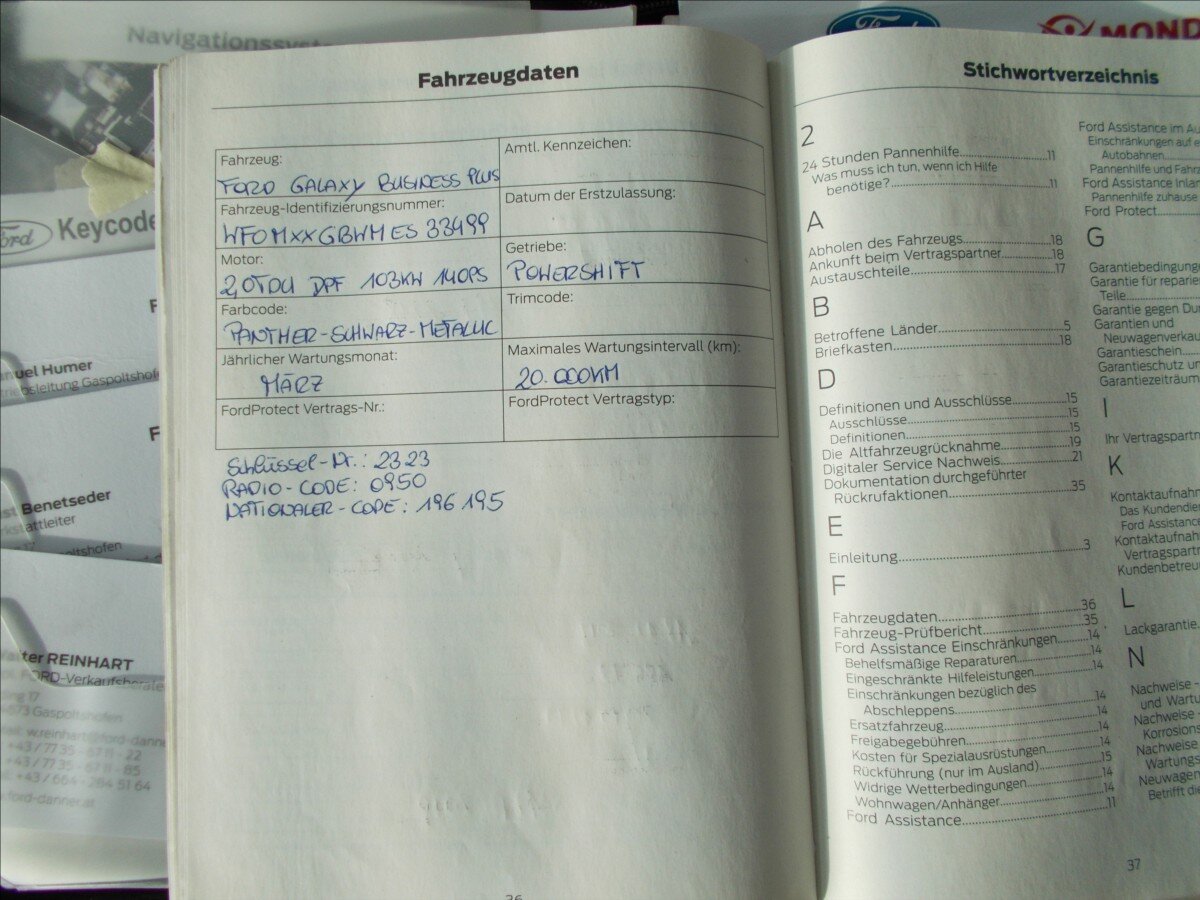 Navigationssyste
Ford
MOND
Ford
Keycode
Humer
riebsleitung Gaspoltshofe
Benetseder
kstattleiter
poltshofen
REINHART
FORD-Verkaufsberate
17
Gaspoltshofen
w.reinhart@ford-danne
+43 / 77 35 - 67 11 - 22
+43 / 77 35 - 67 11 - 85
+43 / 664 - 264 51 64
ford-danner.at
Fahrzeugdaten
Fahrzeug:
FORD GALAXY BUSINESS PLUS
Amtl. Kennzeichen:
Fahrzeug-Identifizierungsnummer:
WF0MXXGBWMES 33499
Datum der Erstzulassung:
Motor:
2,0TDCI DPF 103KW 140PS
Getriebe:
POWERSHIFT
Farbcode:
PANTHER-SCHWARZ-METALLIC
Trimcode:
Jährlicher Wartungsmonat:
MÄRZ
Maximales Wartungsintervall (km):
20.000KM
FordProtect Vertrags-Nr.:
FordProtect Vertragstyp:
Schlüssel-Nr.: 2323
RADIO-CODE: 0950
NATIONALER-CODE: 196 195
36
Stichwortverzeichnis
2
24 Stunden Pannenhilfe 11
Was muss ich tun, wenn ich Hilfe
benötige? 11
A
Abholen des Fahrzeugs 18
Ankunft beim Vertragspartner 18
Austauschteile 17
B
Betroffene Länder 5
Briefkasten 18
D
Definitionen und Ausschlüsse 15
Ausschlüsse 15
Definitionen 15
Die Altfahrzeugrücknahme 19
Digitaler Service Nachweis 21
Dokumentation durchgeführter
Rückrufaktionen 35
E
Einleitung 3
F
Fahrzeugdaten 36
Fahrzeug-Prüfbericht 35
Ford Assistance Einschränkungen 14
Behelfsmäßige Reparaturen 14
Eingeschränkte Hilfeleistungen 14
Einschränkungen bezüglich des
Abschleppens 14
Ersatzfahrzeug 14
Freigabegebühren 14
Kosten für Spezialausrüstungen 14
Rückführung (nur im Ausland) 15
Widrige Wetterbedingungen 14
Wohnwagen/Anhänger 14
Ford Assistance 11
Ford Assistance im Au
Einschränkungen auf e
Autobahnen
Pannenhilfe und Fahrz
Ford Assistance Inlan
Pannenhilfe zuhause
Ford Protect
G
Garantiebedingunge
Garantie für reparie
Teile
Garantie gegen Du
Garantien und
Neuwagenverkau
Garantieschein
Garantieschutz u
Garantiezeiträum
I
Ihr Vertragspartn
K
Kontaktaufnahm
Das Kundendie
Ford Assistanc
Kontaktaufnah
Vertragspartn
Kundenbetreu
L
Lackgarantie
N
Nachweise -
und Wartu
Nachweise -
Korrosions
Nachweise
Wartungs
Neuwagen
Betrifft die
37